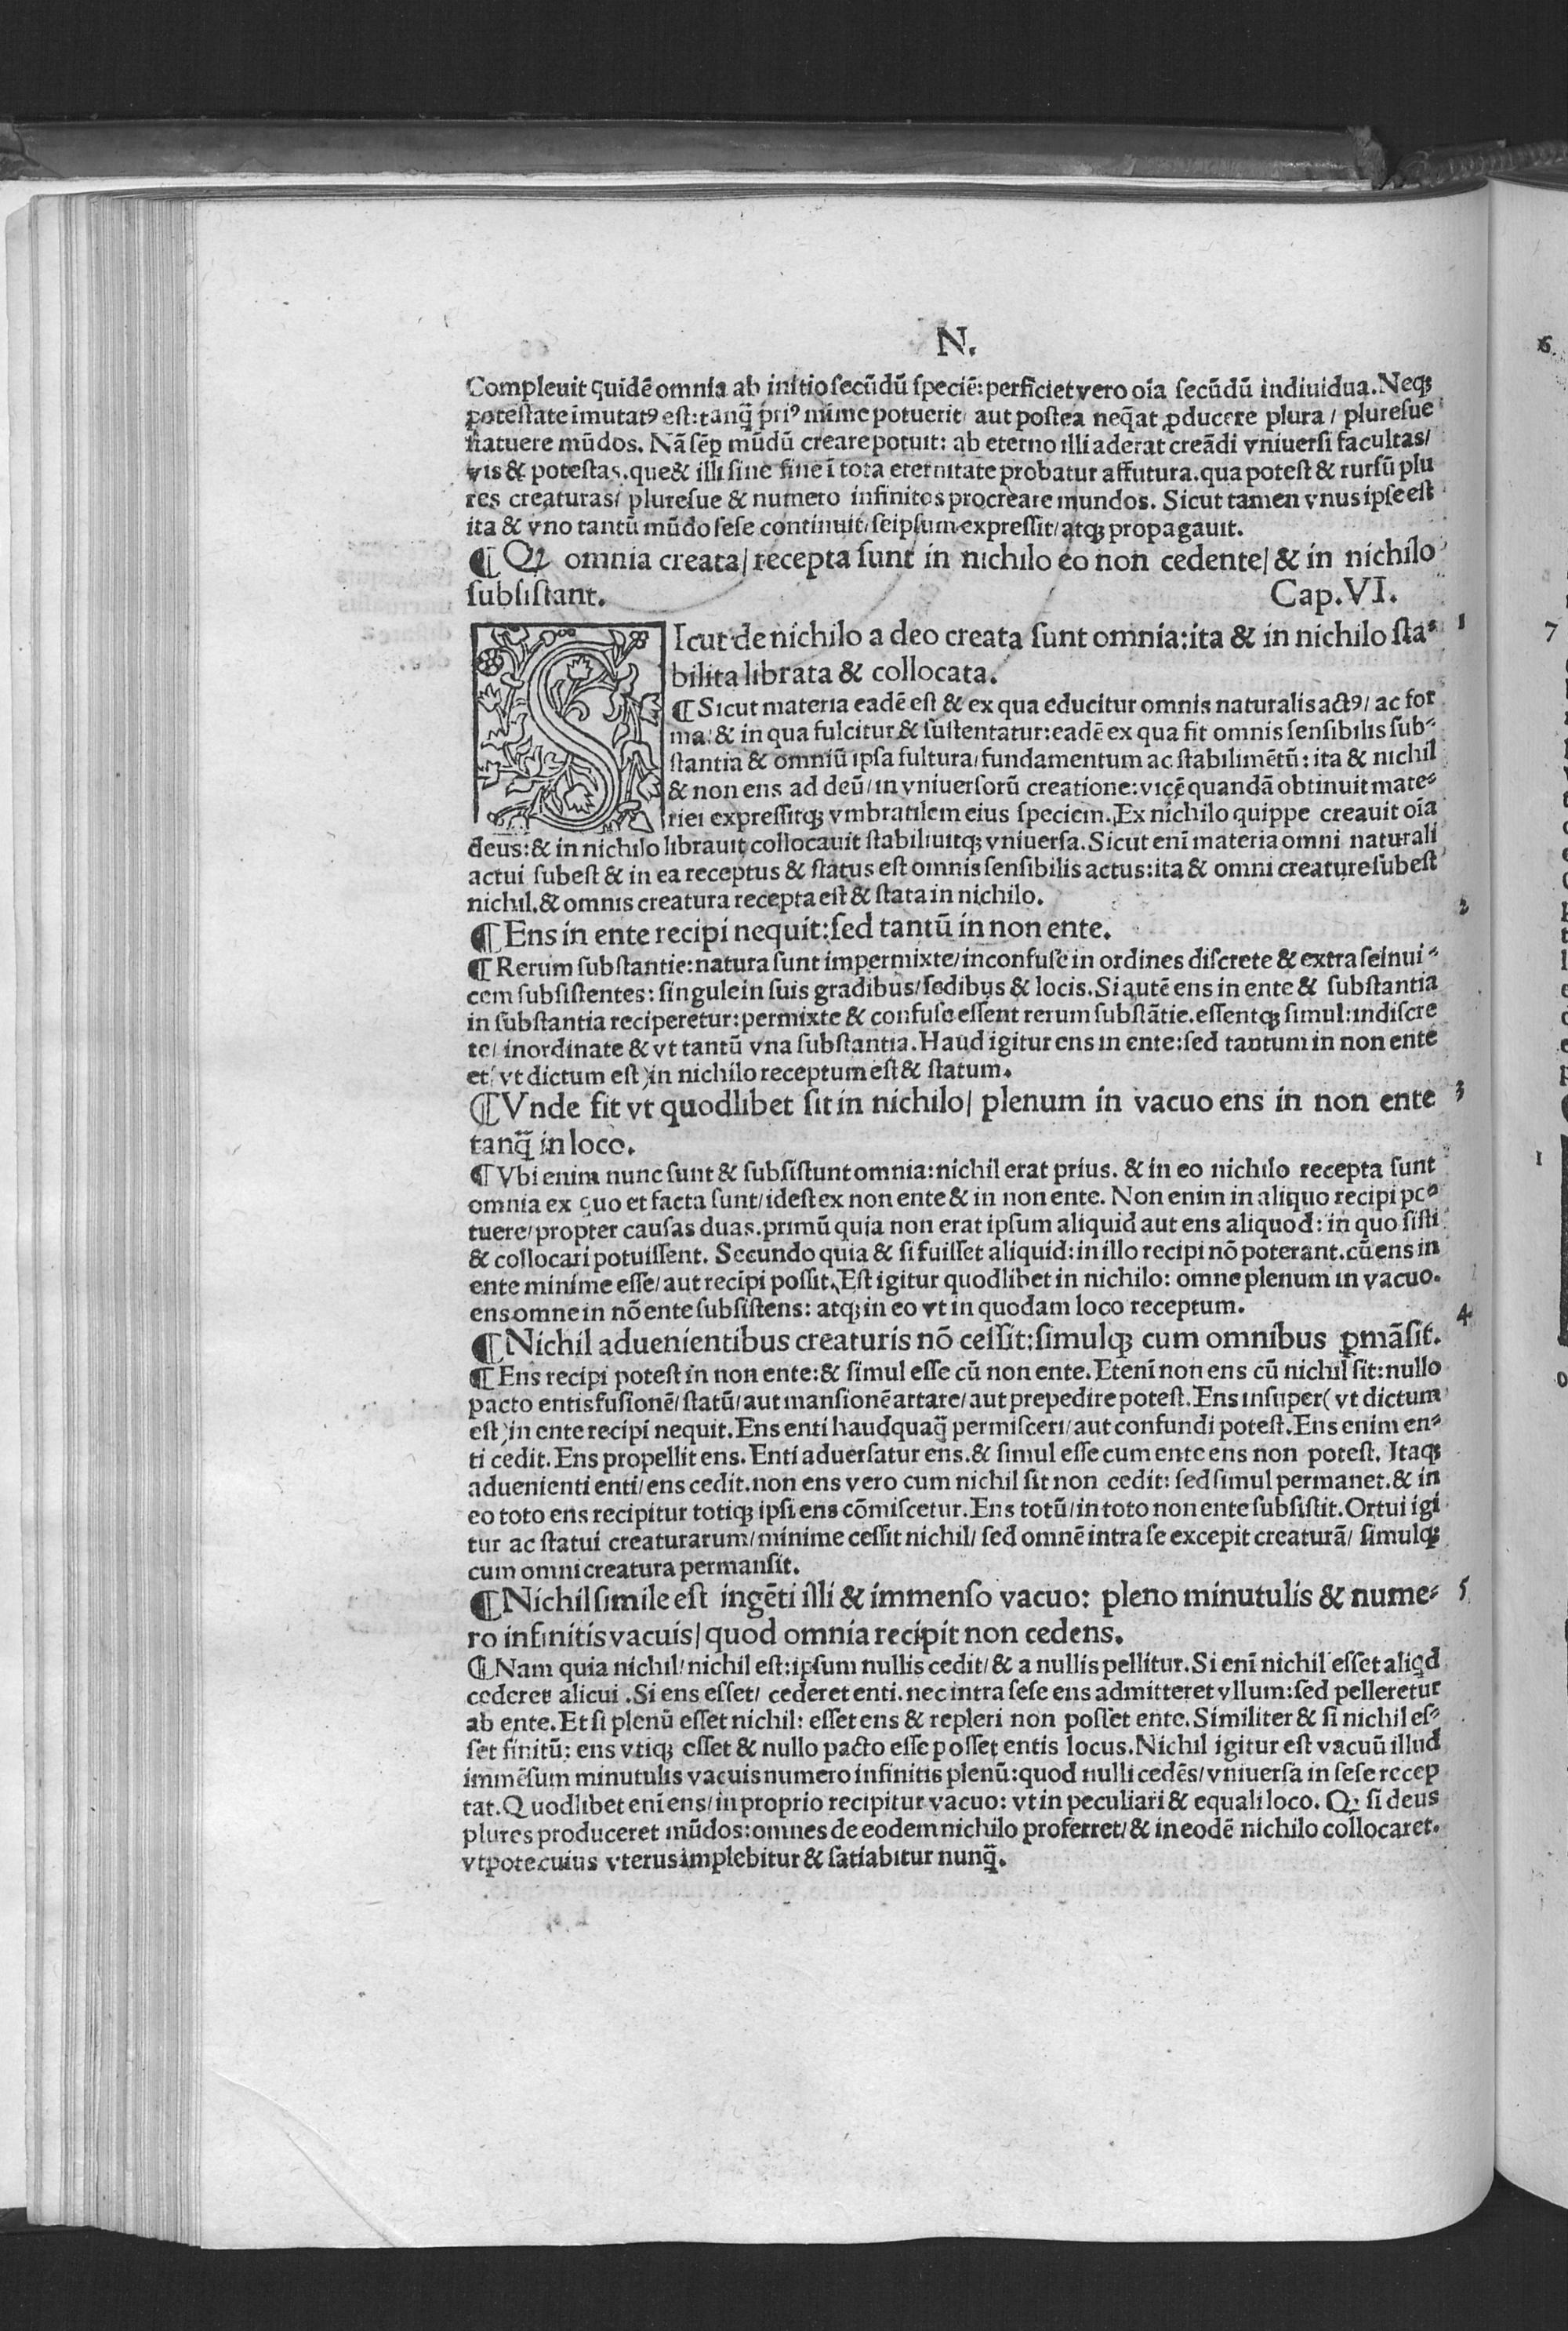 N.
Compleuit quidẽ omnia ab initio secũdũ speciẽ: perficiet vero oĩa secũdũ indiuidua. Neqꝫ
potestate ĩmutatꝰ est: tanq̃ priꝰ mĩme potuerit/ aut postea neq̃at ꝓducere plura/ pluresue
statuere mũdos. Nã sẽꝑ mũdũ creare potuit: ab eterno illi aderat creãdi vniuersi facultas/
vis & potestas. que & illi sine fine ĩ tota eternitate probatur affutura. qua potest & rursũ plu
res creaturas/ pluresue & numero infinitos procreare mundos. Sicut tamen vnus ipse est
ita & vno tantũ mũdo sese continuit/ seipsum expressit/ atqꝫ propagauit.
¶ Ꝙ omnia creata/ recepta sunt in nichilo eo non cedente/ & in nichilo
subsistant. Cap. VI.
SIcut de nichilo a deo creata sunt omnia: ita & in nichilo sta⸗ 1
bilita librata & collocata.
¶ Sicut materia eadẽ est & ex qua educitur omnis naturalis actꝰ/ ac for
ma: & in qua fulcitur & sustentatur: eadẽ ex qua fit omnis sensibilis sub⸗
stantia & omniũ ipsa fultura/ fundamentum ac stabilimẽtũ: ita & nichil
& non ens ad deũ/ in vniuersorũ creatione: vicẽ quandã obtinuit mate⸗
riei expressitqꝫ vmbratilem eius speciem. Ex nichilo quippe creauit oĩa
deus: & in nichilo librauit collocauit stabiliuitqꝫ vniuersa. Sicut enĩ materia omni naturali
actui subest & in ea receptus & status est omnis sensibilis actus: ita & omni creature subest
nichil. & omnis creatura recepta est & stata in nichilo.
¶ Ens in ente recipi nequit: sed tantũ in non ente. 2
¶ Rerum substantie: natura sunt impermixte/ inconfuse in ordines discrete & extra seinui⸗
cem subsistentes: singule in suis gradibus/ sedibus & locis. Si autẽ ens in ente & substantia
in substantia reciperetur: permixte & confuse essent rerum substãtie. essentqꝫ simul: indiscre
te/ inordinate & vt tantũ vna substantia. Haud igitur ens in ente: sed tantum in non ente
et( vt dictum est) in nichilo receptum est & statum.
¶ Vnde fit vt quodlibet sit in nichilo/ plenum in vacuo ens in non ente 3
tanq̃ in loco.
¶ Vbi enim nunc sunt & subsistunt omnia: nichil erat prius. & in eo nichilo recepta sunt
omnia ex quo et facta sunt/ idest ex non ente & in non ente. Non enim in aliquo recipi po⸗
tuere/ propter causas duas. primũ quia non erat ipsum aliquid aut ens aliquod: in quo sisti
& collocari potuissent. Secundo quia & si fuisset aliquid: in illo recipi nõ poterant. cũ ens in
ente minime esse/ aut recipi possit. Est igitur quodlibet in nichilo: omne plenum in vacuo.
ens omne in nõ ente subsistens: atqꝫ in eo vt in quodam loco receptum.
¶ Nichil aduenientibus creaturis nõ cessit: simulqꝫ cum omnibus ꝑmãsit. 4
¶ Ens recipi potest in non ente: & simul esse cũ non ente. Etenĩ non ens cũ nichil sit: nullo
pacto entis fusionẽ/ statũ/ aut mansionẽ artare/ aut prepedire potest. Ens insuper( vt dictum
est) in ente recipi nequit. Ens enti haudquaq̃ permisceri/ aut confundi potest. Ens enim en⸗
ti cedit. Ens propellit ens. Enti aduersatur ens. & simul esse cum ente ens non potest. Itaqꝫ
aduenienti enti/ ens cedit. non ens vero cum nichil sit non cedit: sed simul permanet. & in
eo toto ens recipitur totiqꝫ ipsi ens cõmiscetur. Ens totũ/ in toto non ente subsistit. Ortui igi
tur ac statui creaturarum/ minime cessit nichil/ sed omnẽ intra se excepit creaturã/ simulqꝫ
cum omni creatura permansit.
¶ Nichil simile est ingẽti illi & immenso vacuo: pleno minutulis & nume⸗ 5
ro infinitis vacuis/ quod omnia recipit non cedens.
¶ Nam quia nichil/ nichil est: ipsum nullis cedit/ & a nullis pellitur. Si enĩ nichil esset aliqd
cederet alicui. Si ens esset/ cederet enti. nec intra sese ens admitteret vllum: sed pelleretur
ab ente. Et si plenũ esset nichil: esset ens & repleri non posset ente. Similiter & si nichil es⸗
set finitũ: ens vtiqꝫ esset & nullo pacto esse posset entis locus. Nichil igitur est vacuũ illud
immẽsum minutulis vacuis numero infinitis plenũ: quod nulli cedẽs/ vniuersa in sese recep
tat. Quodlibet enĩ ens/ in proprio recipitur vacuo: vt in peculiari & equali loco. Ꝙ si deus
plures produceret mũdos: omnes de eodem nichilo proferret/ & in eodẽ nichilo collocaret.
vtpote cuius vterus implebitur & satiabitur nunq̃.
6
7
1